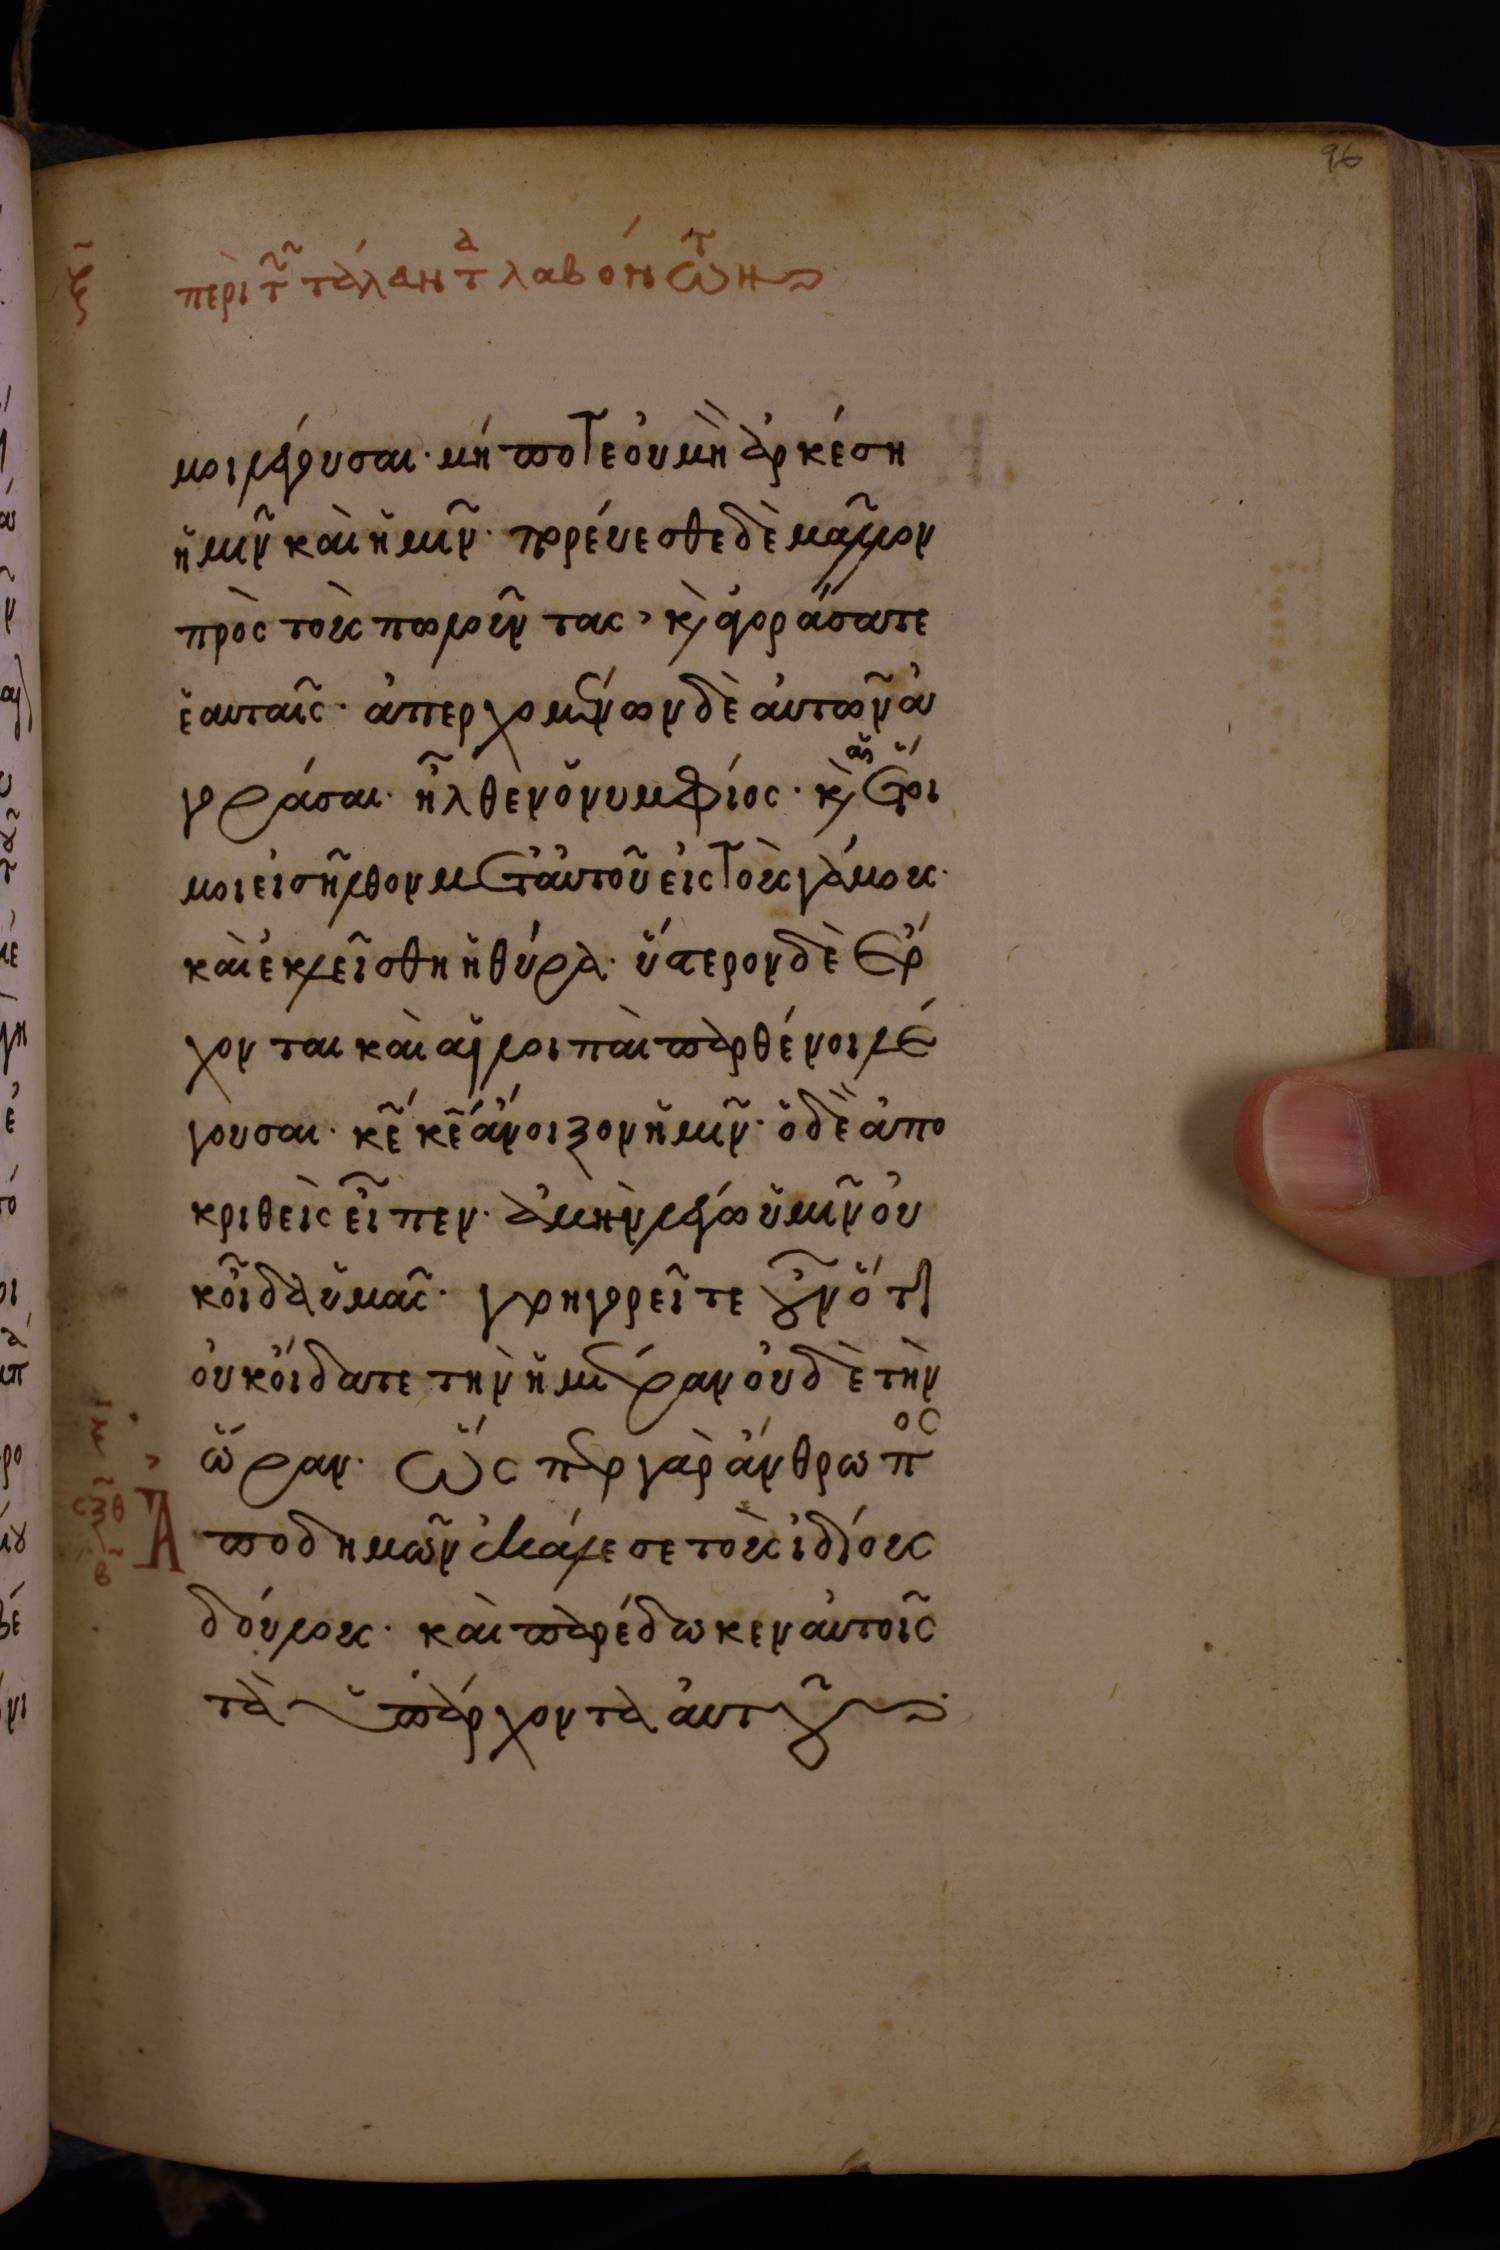 96
ξ̃ περὶ τ̃ τάλαντ λαβόντων
μοι λέγουσαι· μήποτε οὐ μὴ ἀρκέση
ἡμῖν καὶ ἡμῖν· πορέυεσθε δὲ μᾶλλον
πρὸς τοὺς πωλοῦντας, κ̀ ἀγοράσατε
ἑαυταῖς· ἀπερχομένων δὲ ἀυτῶν ἀ
γοράσαι· ἦλθεν ὁ νυμφίος· κ̀ αἱ ἕτοι
μοι εἰσῆλθον μετ ἀυτοῦ εἰς τοὺς γάμους·
καὶ ἐκλεῖσθη ἡ θύρα· ὕστερον δὲ ἔρ
χονται καὶ αἱ λοιπαὶ παρθένοι λέ
γουσαι· κε̃ κε̃ ἄνοιξον ἡμῖν· ὁ δὲ ἀπο
κριθεὶς εἶπεν· ἀμὴν λέγω ὑμῖν οὐ
κ οἶδα ὑμᾶς· γρηγορεῖτε οὖν ὅτι
οὐκ οἴδατε τὴν ἡμέραν οὐδὲ τὴν
ὥραν· ὥσπερ γὰρ ἄνθρωπος
σξθ β Ἀποδημῶν ἐκάλεσε τοὺς ἰδίους
δούλους· καὶ παρέδωκεν ἀυτοῖς
τὰ ὑπάρχοντα ἀυτοῦ·